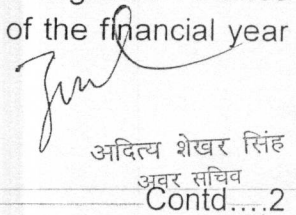 of the financial year
अदित्य शेखर सिंह
अवर सचिव
Contd....2